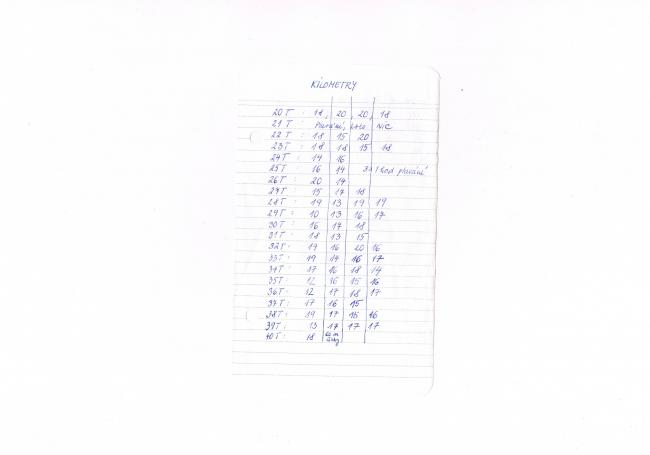 KILOMETRY
20T : 18, 20, 20, 18
21T : Plavání, kolo NIC
22T : 18 15 20
23T : 18 18 15 18
24T : 14 16
25T : 16 14 3x 1 hod plavání
26T : 20 14
27T : 15 17 18
28T : 19 13 19 19
29T : 10 13 16 17
30T : 16 17 18
31T : 18 13 15
32T : 19 16 20 16
33T : 19 14 16 17
34T : 17 16 18 14
35T : 12 16 15 16
36T : 12 17 18 17
37T : 17 16 15
38T : 19 17 15 16
39T : 13 17 17 17
40T : 18